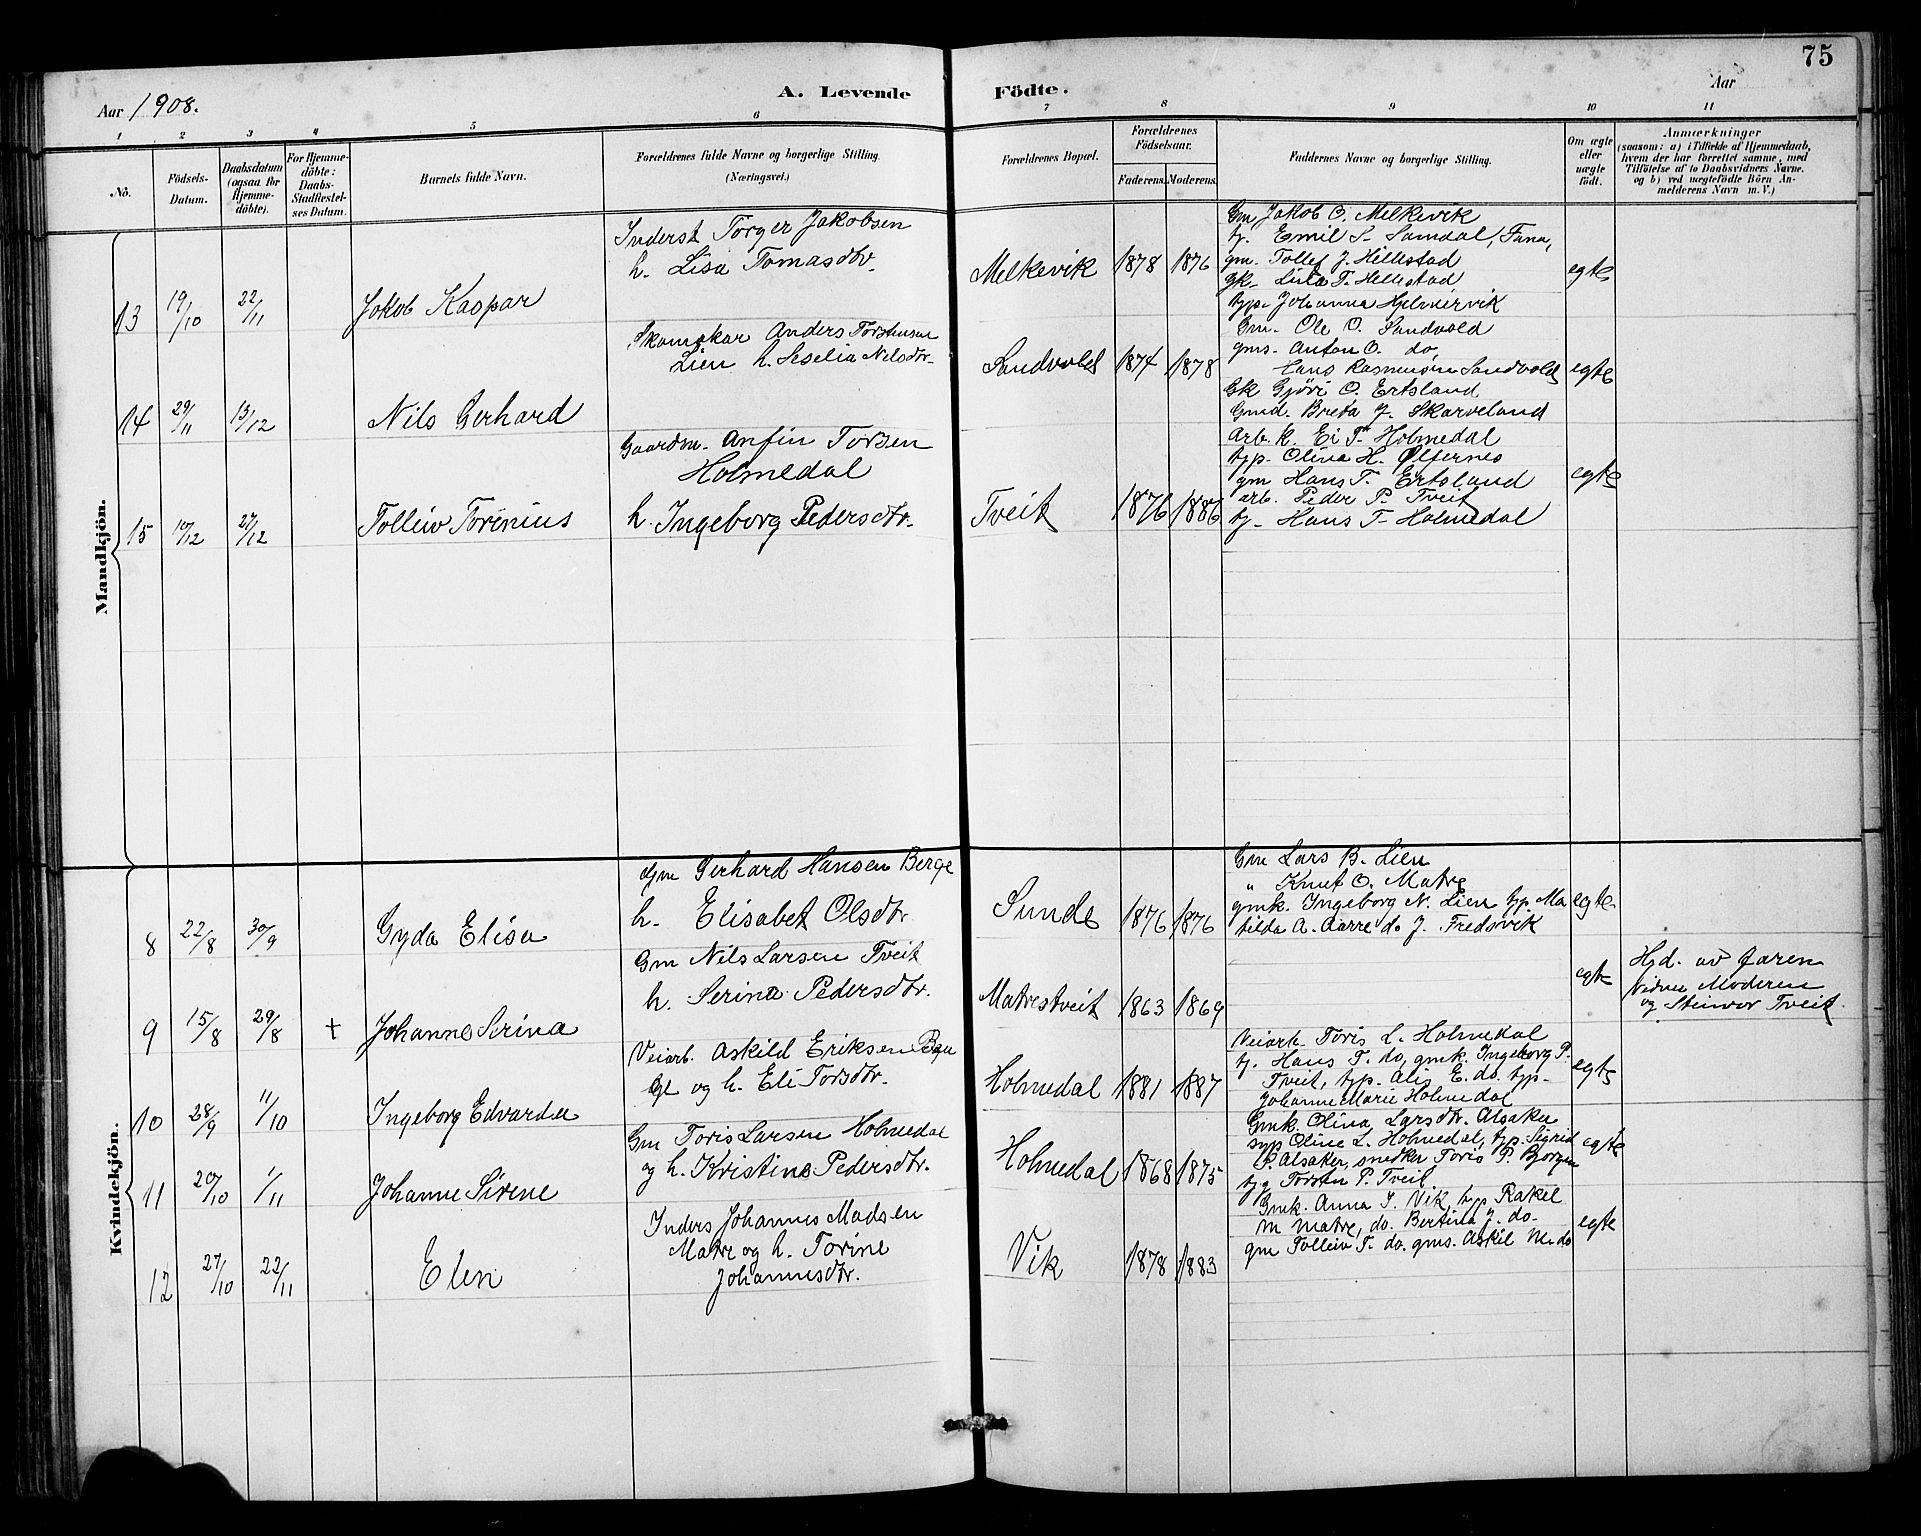 75
Aar 1908. A. Levende Födte. Aar
1 2 3 4 5 6 7 8 9 10 11
Nò. Födsels-Datum. Daabsdatum (ogsaa for Hjemme-döbte). For Hjemme-döbte: Daabs-Stadfæstel-ses Datum. Barnets fulde Navn. Forældrenes fulde Navne og borgerlige Stilling. (Næringsvei.) Forældrenes Bopæl. Forældrenes Födselsaar. Faderens. Moderens. Faddernes Navne og borgerlige Stilling. Om ægte eller uægte födt. Anmærkninger
(saasom: a) i Tilfælde af Hjemmedaab,
hvem der har forrettet samme, med
Tilföielse af to Daabsvidners Navne.
og b) ved uægtefödte Börn An-
melderens Navn m. V.)
Mandkjön.
13 19/10 22/11 Jakob Kaspar
Inderst Torger Jakobsen
h. Lisa Tomasdtr.
Melkevik 1878 1876
Gm Jakob O. Melkevik
tj. Emil S. Samdal, Fana,
gm. Tollef J. Hillestad
gk. Lisa T. Hillestad
typ. Johanna Hjelmervik
egte
14 29/11 13/12 Nils Gerhard
Anders Torstensen
Lien h. Seselia Nilsdtr.
Sandvold 1874 1878
Gm. Ole O. Sandvold
gms. Anton O. do,
Hans Rasmusson Sandvold
Gk Gjöri O. Ertsland
Gmd. Breta J. Skarveland
egte
15 10/12 27/12 Tolleiv Torenius
Gaardm. Anfin Torsen
Holmedal
h. Ingeborg Pedersdtr.
Tveit 1876 1886
Arb. k. Eli T. Holmedal
typ. Olina H. Ølfernes
gm Hans T. Ertsland
arb. Peder P. Tveit
tj. Hans T. Holmedal
egte
Kvindekjön.
8 22/8 30/9 Gyda Elisa
Gm Gerhard Hansen Berge
h. Elisabet Olsdtr.
Sunde 1876 1876
Gm Lars B. Lien
" Knut O. Matre
gmk. Ingeborg N. Lien typ Ma
tilda A. Aarre do J. Fredsvik
egte
9 15/8 29/8 + Johanne Serina
Gm Nils Larsen Tveit
h. Serina Pedersdtr.
Matrestveit 1863 1869
egte
Hjd. av faren
Vidner Moderen
og Steinvor Tveit.
10 28/9 11/10 Ingeborg Edvarda
Veiarb. Askild Eriksen
og h. Eli Torsdtr.
Holmedal 1881 1887
Veiarb. Toris L. Holmedal
tj. Hans T. do, gmk. Ingeborg P.
Tveit, typ. Alis E. do. typ.
Johanne Marie Holmedal
egte
11 20/10 1/11 Johanne Sirene
Gm Toris Larsen Holmedal
og h. Kristine Pedersdtr.
Holmedal 1868 1875
Gmk. Olina Larsdtr. Alsaker
syp Oline L. Holmedal, typ. Sigrid
P. Alsaker, snedker Toris P. Bjorgen
tyg Torsten P. Tveit
egte
12 27/10 22/11 Elen
Inders Johannes Madsen
Matre og h. Torine
Johannesdtr.
Vik 1878 1883
Gmk. Anna I. Vik, typ Rakel
M Matre, do. Bertina J. do.
gm Tolleiv T. do. gms. Askil M. do
egte